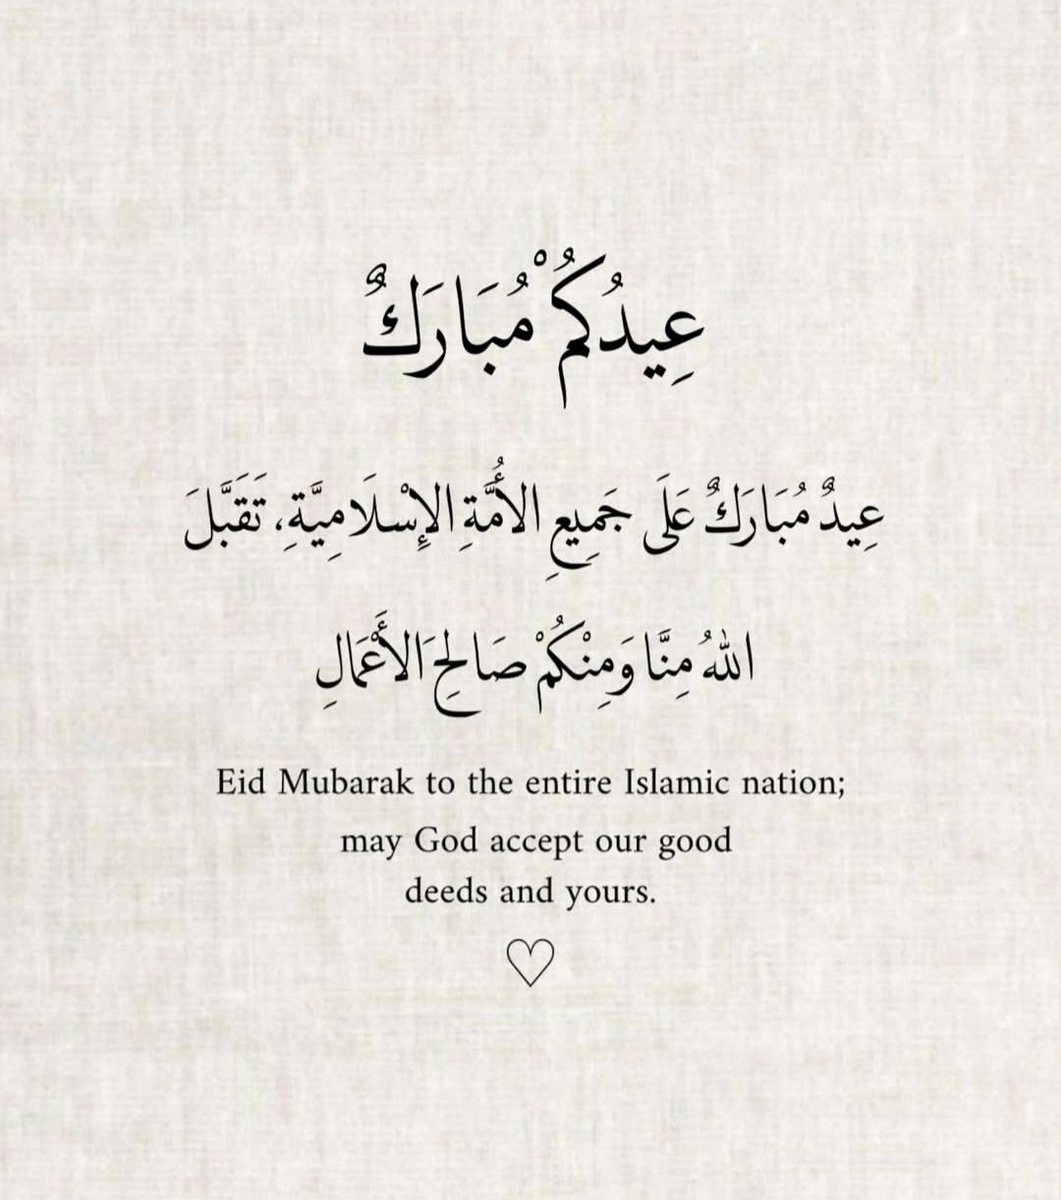 عِيدُكُمْ مُبَارَكٌ
عِيدٌ مُبَارَكٌ عَلَى جَمِيعِ الأُمَّةِ الإِسْلَامِيَّةِ، تَقَبَّلَ
اللهُ مِنَّا وَمِنْكُمْ صَالِحَ الأَعْمَالِ
Eid Mubarak to the entire Islamic nation;
may God accept our good
deeds and yours.